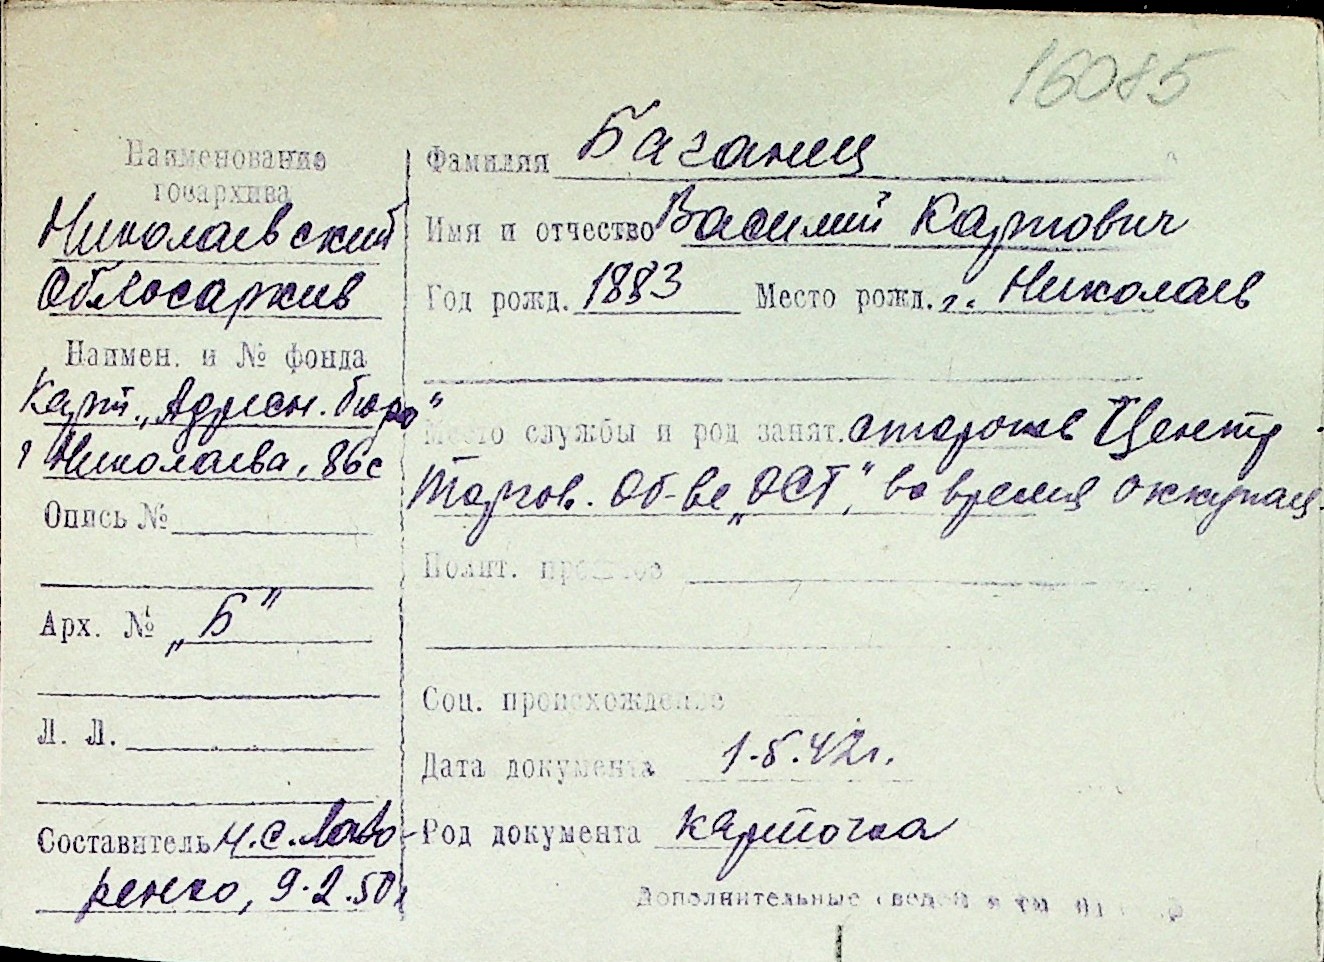 16085
Наименование
госархива
Николаевский
Облгосархив
Наимен. и № фонда
Карт. „Адресн. бюро"
г Николаева, 86с
Опись №
Арх. № „Б"
Л. Л.
Составитель Н. С. Лаво-
ренко, 9.2.50г
Фамилия Баганец
Имя и отчество Василий Карпович
Год рожд. 1883 Место рожд. г. Николаев
Место службы и род занят. сторож в Центр
Торгов. Об-ве „ОСТ", во время оккупац.
Полит. прошлое
Соц. происхождение
Дата документа 1.5.42г.
Род документа карточка
Дополнительные сведен